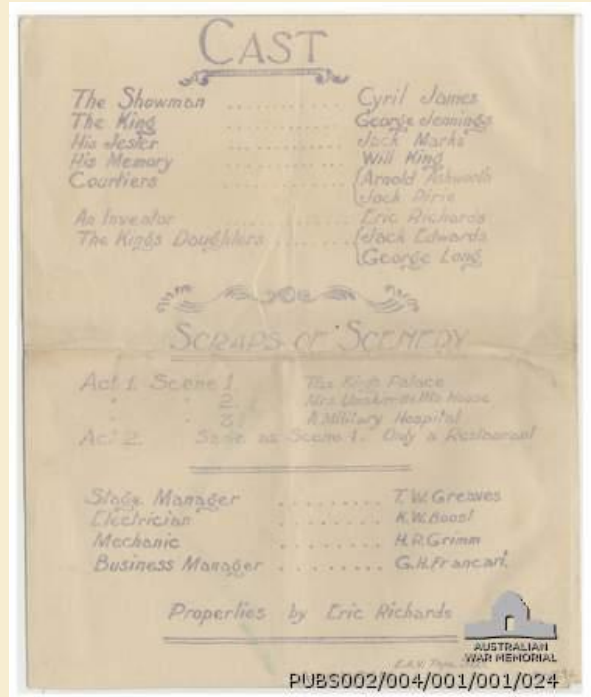 CAST
The Showman .............. Cyril James
The King .............. George Jennings
His Jester .............. Jack Marks
His Memory .............. Will King
Courtiers .............. (Arnold Ashworth
(Jack Pirie
An Inventor .............. Eric Richards
The Kings Daughters ....... (Jack Edwards
(George Long
SCRAPS OF SCENERY
Act 1. Scene 1. The Kings Palace
" " 2. Mrs House
" " 3. A Military Hospital
Act 2. Same as Scene 1. Only a Restaurant
Stage Manager .......... T.W. Greaves
Electrician .......... K.W. Boast
Mechanic .......... H.R. Grimm
Business Manager ........ G.H. Francart.
Properties by Eric Richards
AUSTRALIAN
WAR MEMORIAL
PUBS002/004/001/001/024